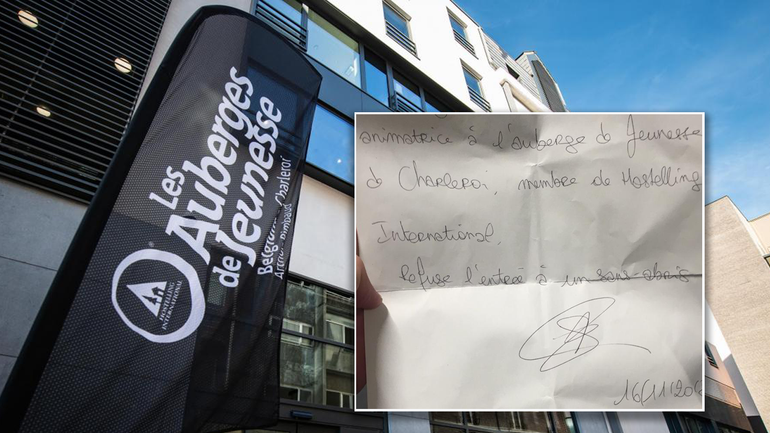 Les
Auberges
de Jeunesse
HOSTELLING
INTERNATIONAL
animatrice à l'auberge de Jeunesse
de Charleroi, membre de Hostelling
International,
refuse l'entrée à un sans-abris
16/11/20